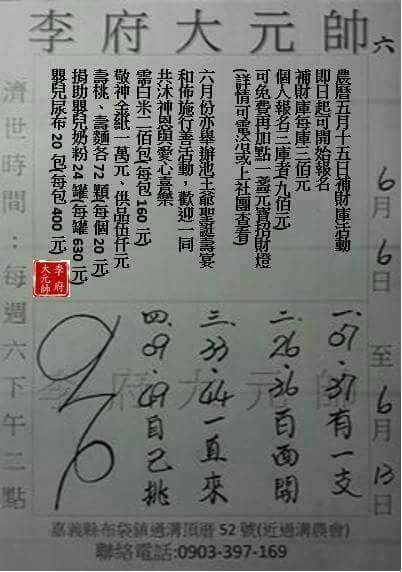 李府大元帥
六
6月6日至6月13日
農曆五月十五日補財庫活動
即日起可開始報名
補財庫每庫三佰元
個人報名三庫者(九佰元)
可免費再加點一盞元寶招財燈
(詳情可電洽或上社團查看)
六月份亦舉辦池王爺聖誕壽宴
和佈施行善活動,歡迎一同
共沐神恩與愛心喜樂
需白米二佰包(每包160元)
敬神金紙一萬元、供品伍仟元
壽桃、壽麵各72顆(每個20元)
捐助嬰兒奶粉24罐(每罐630元)
嬰兒尿布20包(每包400元)
李府大元帥
一.07.37有一支
二.26.36百面開
三.33.44一直來
四.09.49自己挑
李府大元帥
濟世時間:每週六下午二點
嘉義縣布袋鎮過溝頂厝52號(近過溝農會)
聯絡電話:0903-397-169